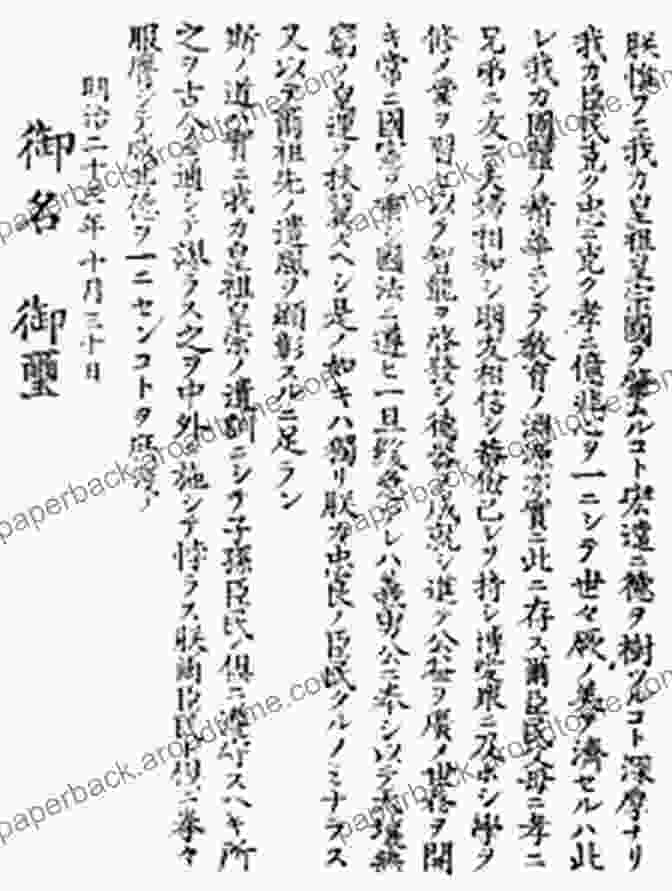 朕惟フニ我カ皇祖皇宗國ヲ肇ムルコト宏遠ニ德ヲ樹ツルコト深厚ナリ
我カ臣民克ク忠ニ克ク孝ニ億兆心ヲ一ニシテ世々厥ノ美ヲ濟セルハ此
レ我カ國體ノ精華ニシテ教育ノ淵源亦實ニ此ニ存ス爾臣民父母ニ孝ニ
兄弟ニ友ニ夫婦相和シ朋友相信シ恭儉己レヲ持シ博愛衆ニ及ホシ學ヲ
修メ業ヲ習ヒ以テ智能ヲ啓發シ德器ヲ成就シ進テ公益ヲ廣メ世務ヲ開
キ常ニ國憲ヲ重シ國法ニ遵ヒ一旦緩急アレハ義勇公ニ奉シ以テ天壤無
窮ノ皇運ヲ扶翼スヘシ是ノ如キハ獨リ朕カ忠良ノ臣民タルノミナラス
又以テ爾祖先ノ遺風ヲ顯彰スルニ足ラン
斯ノ道ハ實ニ我カ皇祖皇宗ノ遺訓ニシテ子孫臣民ノ俱ニ遵守スヘキ所
之ヲ古今ニ通シテ謬ラス之ヲ中外ニ施シテ悖ラス朕爾臣民ト俱ニ拳々
服膺シテ咸其德ヲ一ニセンコトヲ庶幾フ
明治二十三年十月三十日
御名 御璽
paperback.aroadtome.com